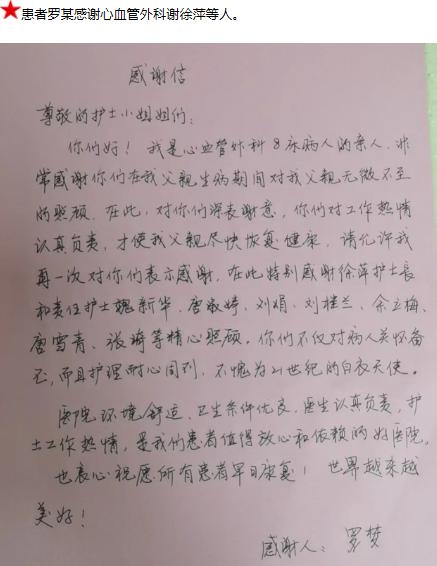 患者罗某感谢心血管外科谢徐萍等人。
感谢信
尊敬的护士小姐姐们：
你们好！我是心血管外科8床病人的亲人，非
常感谢你们在我父亲生病期间对我父亲无微不至
的照顾，在此，对你们深表谢意，你们对工作热情
认真负责，才使我父亲尽快恢复健康，请允许我
再一次对你们表示感谢，在此特别感谢徐萍护士长
和责任护士魏新华、唐淑婷、刘娟、刘桂兰、余立梅、
唐雪青、张琦等精心照顾。你们不仅对病人关怀备
至，而且护理耐心周到，不愧为21世纪的白衣天使。
医院环境舒适、卫生条件优良，医生认真负责，护
士工作热情，是我们患者值得放心和依赖的好医院。
也衷心祝愿所有患者早日康复！世界越来越
美好！
感谢人：罗梦